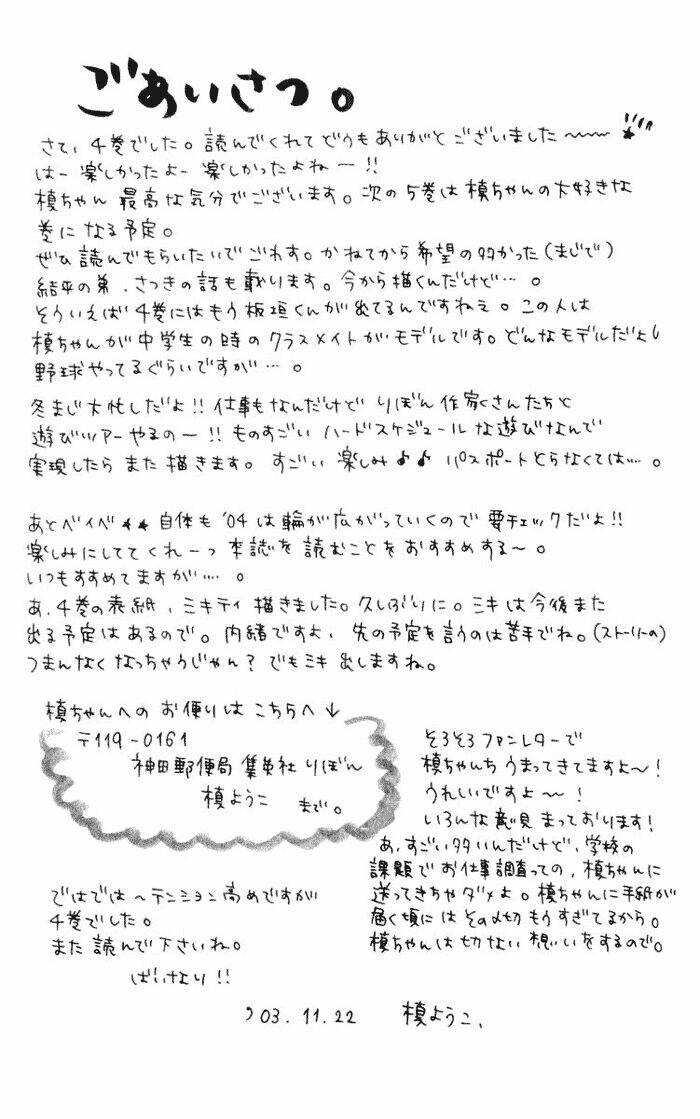 ごあいさつ。
さて、4巻でした。読んでくれてどうもありがとございました〜〜
はー楽しかったよー楽しかったよねー!!
槙ちゃん 最高な気分でございます。次の5巻は槙ちゃんの大好きな
巻になる予定。
ぜひ読んでもらいたいでごわす。かねてから希望の多かった(まじで)
結平の弟、さつきの話も載ります。今から描くんだけど…。
そういえば4巻にはもう板垣くんが出てるんですねぇ。この人は
槙ちゃんが中学生の時のクラスメイトがモデルです。どんなモデルだよ
野球やってるぐらいですが…。
冬まじ大忙しだよ!!仕事もなんだけど りぼん作家くさんたちと
遊びツアーやるの〜!!ものすごい ハードスケジュールな遊びなんで
実現したら また描きます。すごい 楽しみ♪♪ パスポートとらなくては…。
あとベイベ★★自体も'04は輪が広がっていくので 要チェックだよ!!
楽しみにしててくれーっ 本誌を読むことをおすすめする〜。
いつもすすめてますが…。
あ、4巻の表紙、ミキティ描きました。久しぶりに。ミキは今後また
出る予定はあるので。内緒ですよ、先の予定を言うのは苦手でね。(ストーリーの)
つまんなくなっちゃうじゃん?でもミキ出しますね。
槙ちゃんへの お便りは こちらへ↓
〒119-0161
神田郵便局 集英社 りぼん
槙ようこ まで。
そろそろファンレターで
槙ちゃんち うまってきてますよ〜!
うれしいですよ〜!
いろんな意見 まっております!
あ、すごい多いんだけど、学校の
課題で お仕事調査っての、槙ちゃんに
送ってきちゃダメよ。槙ちゃんに手紙が
届く頃には その〆切 もうすぎてるから。
槙ちゃんは切ない 想いをするので。
ではでは〜テンション高めですが
4巻でした。
また 読んで下さいね。
ばいなり!!
'03.11.22 槙ようこ、